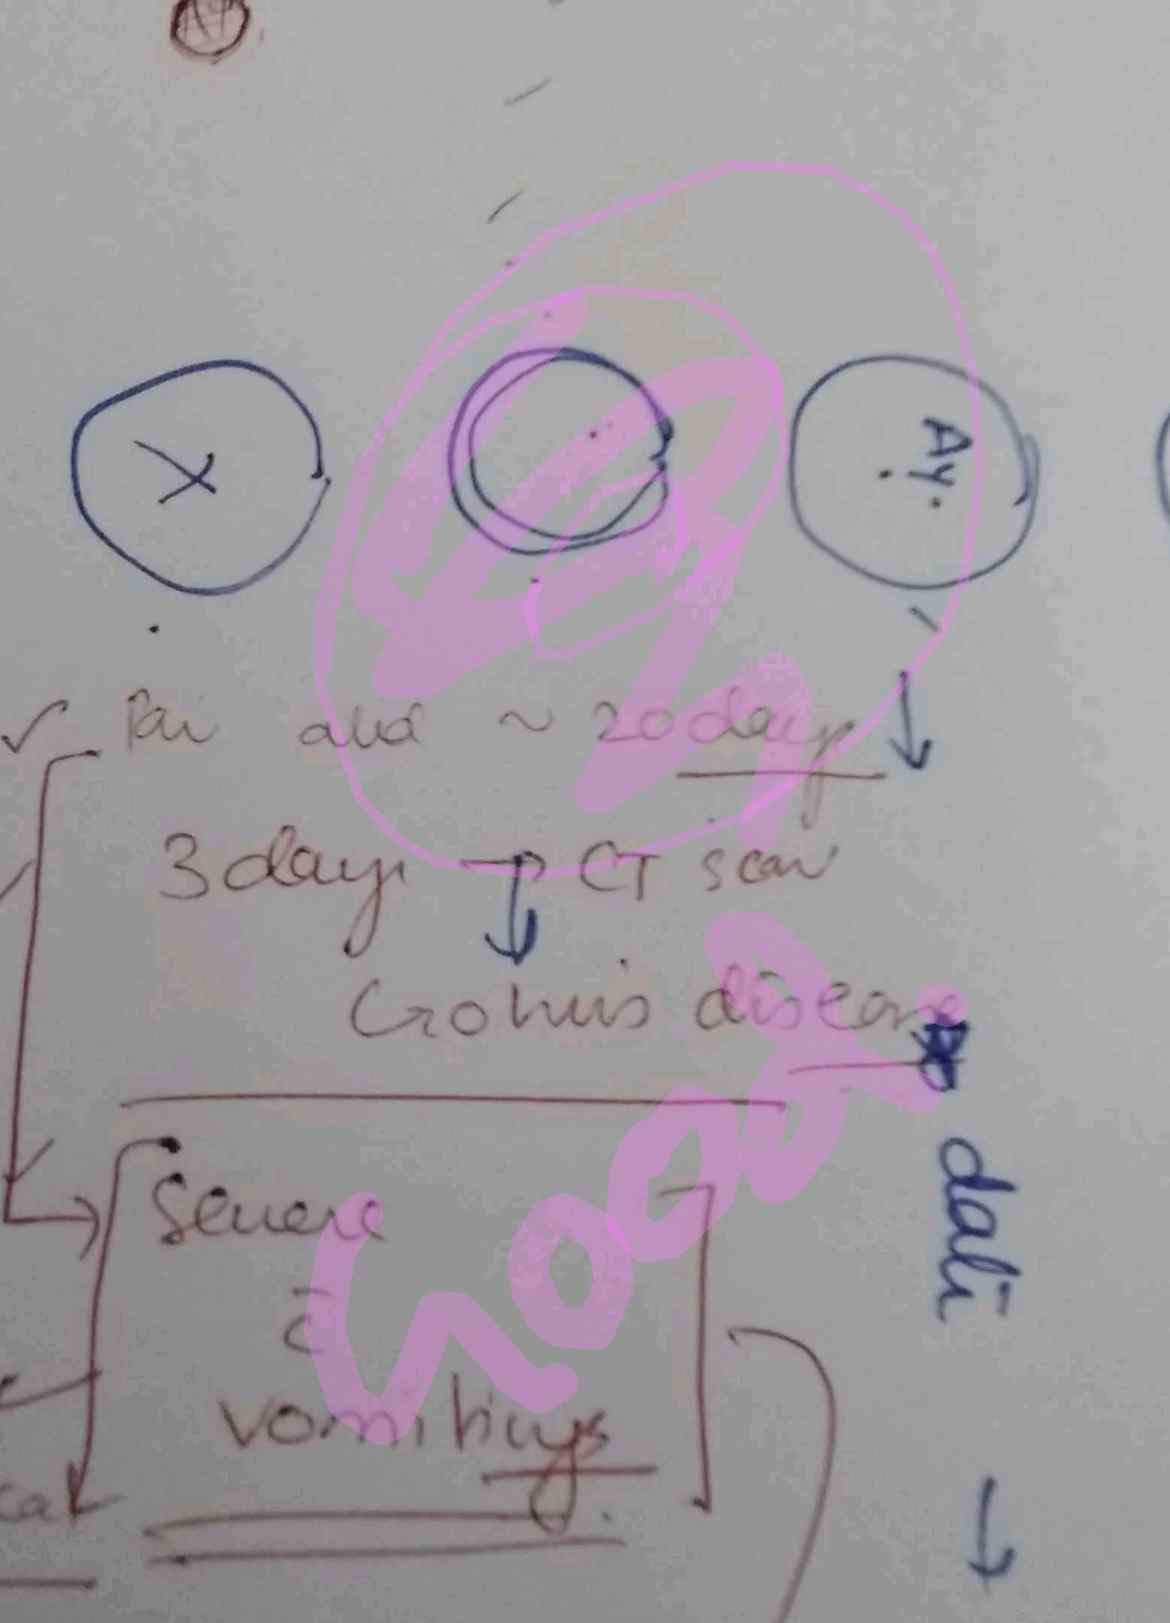 X
Ay.
Pain abd ~ 20 days
3 days → CT scan
Crohn's disease
Severe
c̄
vomitings
dali
Good